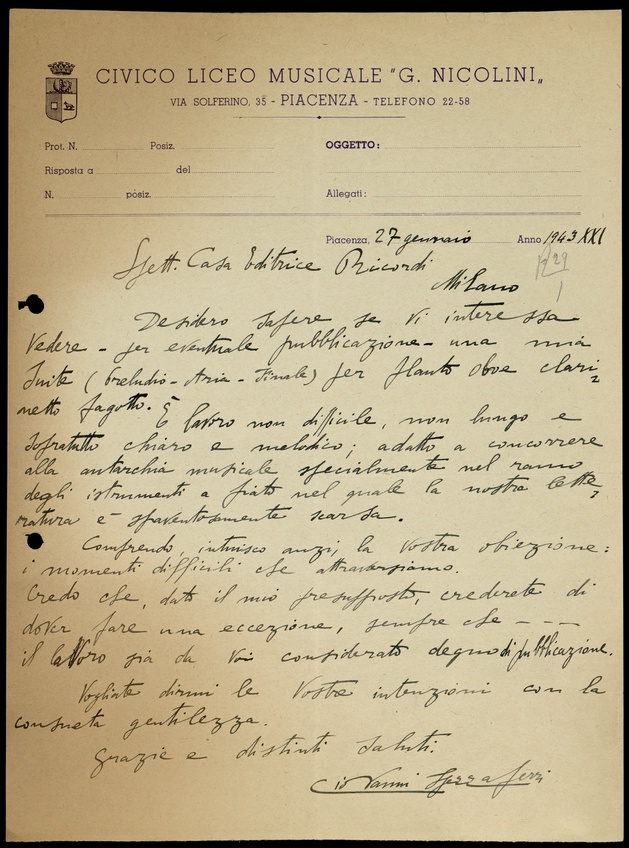 CIVICO LICEO MUSICALE "G. NICOLINI„
VIA SOLFERINO, 35 - PIACENZA - TELEFONO 22-58
Prot. N. Posiz. OGGETTO:
Risposta a del
N. posiz. Allegati:
Piacenza, 27 gennaio Anno 1943 XXI
Spett. Casa Editrice Ricordi
Milano
Desidero sapere se vi interessa
vedere - per eventuale pubblicazione - una mia
Suite (Preludio - Aria - Finale) per flauto oboe clari
netto fagotto. È lavoro non difficile, non lungo e
sopratutto chiaro e melodico; adatto a concorrere
alla autarchia musicale specialmente nel ramo
degli istrumenti a fiato nel quale la nostra lette
ratura è spaventosamente scarsa.
Comprendo, intuisco anzi, la vostra obiezione:
i momenti difficili che attraversiamo.
Credo che, dato il mio presupposto, crederete di
dover fare una eccezione, sempre che - - -
il lavoro sia da voi considerato degno di pubblicazione.
Vogliate dirmi le vostre intenzioni con la
consueta gentilezza.
Grazie e distinti saluti.
Giovanni Spezzaferri